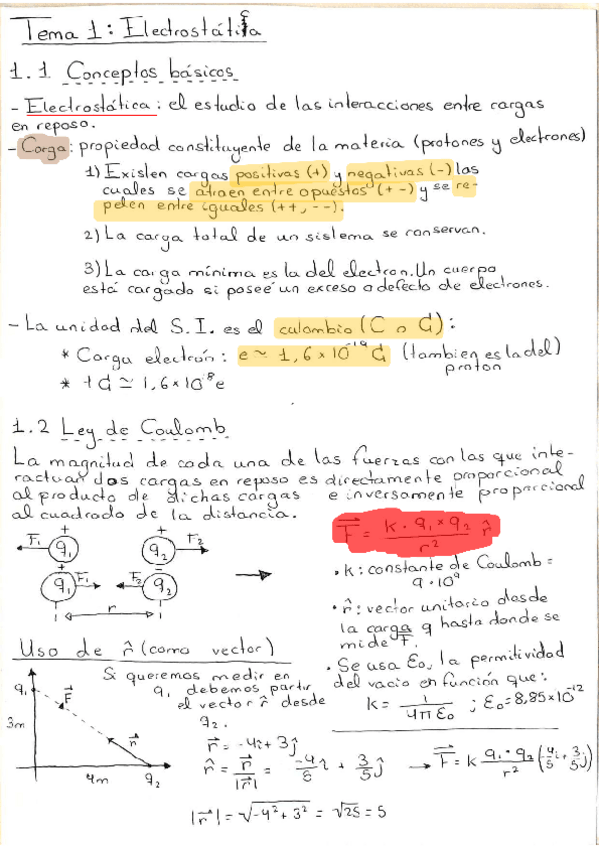 Tema 1: Electrostática
1.1 Conceptos básicos
- Electrostática: el estudio de las interacciones entre cargas
en reposo.
- Carga: propiedad constituyente de la materia (protones y electrones)
1) Existen cargas positivas (+) y negativas (-) las
cuales se atraen entre opuestos (+ -) y se re-
pelen entre iguales (++, --).
2) La carga total de un sistema se conservan.
3) La carga mínima es la del electron. Un cuerpo
está cargado si poseé un exceso o defecto de electrones.
- La unidad del S.I. es el culombio (C o C):
* Carga electrón: e ≃ 1,6×10⁻¹⁹ C (tambien es la del)
proton
* 1 C ≃ 1,6×10⁻⁸ e
1.2 Ley de Coulomb
La magnitud de cada una de las fuerzas con las que inte-
ractuan dos cargas en reposo es directamente proporcional
al producto de dichas cargas e inversamente proporcional
al cuadrado de la distancia.
F = k · q₁ × q₂ / r² r̂
+ +
F₁ q₁ q₂ F₂
+ -
q₁ F₁ F₂ q₂
r
· k: constante de Coulomb =
9·10⁹
· r̂: vector unitario desde
la carga q hasta donde se
mide F.
· Se usa ε₀, la permitividad
del vacio en función que:
k = 1 / 4π ε₀ ; ε₀ = 8,85×10⁻¹²
Uso de r̂ (como vector)
q₁
F
3m
r
4m
q₂
Si queremos medir en
q₁ debemos partir
el vector r̂ desde
q₂.
r = -4i + 3ĵ
r̂ = r / |r| = -4/5 î + 3/5 ĵ → F = k q₁ · q₂ / r² (-4/5 i + 3/5 j)
|r| = √-4² + 3² = √25 = 5